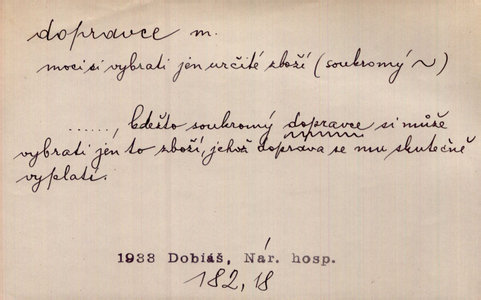 dopravce m.
moci si vybrati jen určité zboží (soukromý ~)
......, kdežto soukromý dopravce si může
vybrati jen to zboží, jehož doprava se mu skutečně
vyplatí.
1938 Dobiáš, Nár. hosp.
182, 18